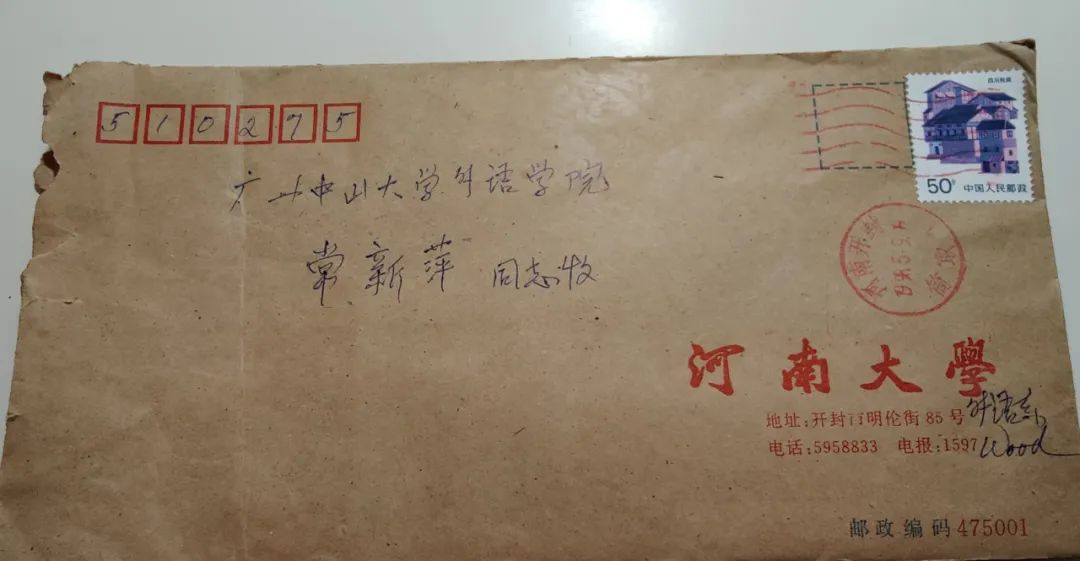 510275
广州中山大学外语学院
常新萍 同志收
四川民居
50分 中国人民邮政
河南开封
河南大學
地址:开封市明伦街85号 外语系
电话:5958833 电报:1597 Wood
邮政编码475001